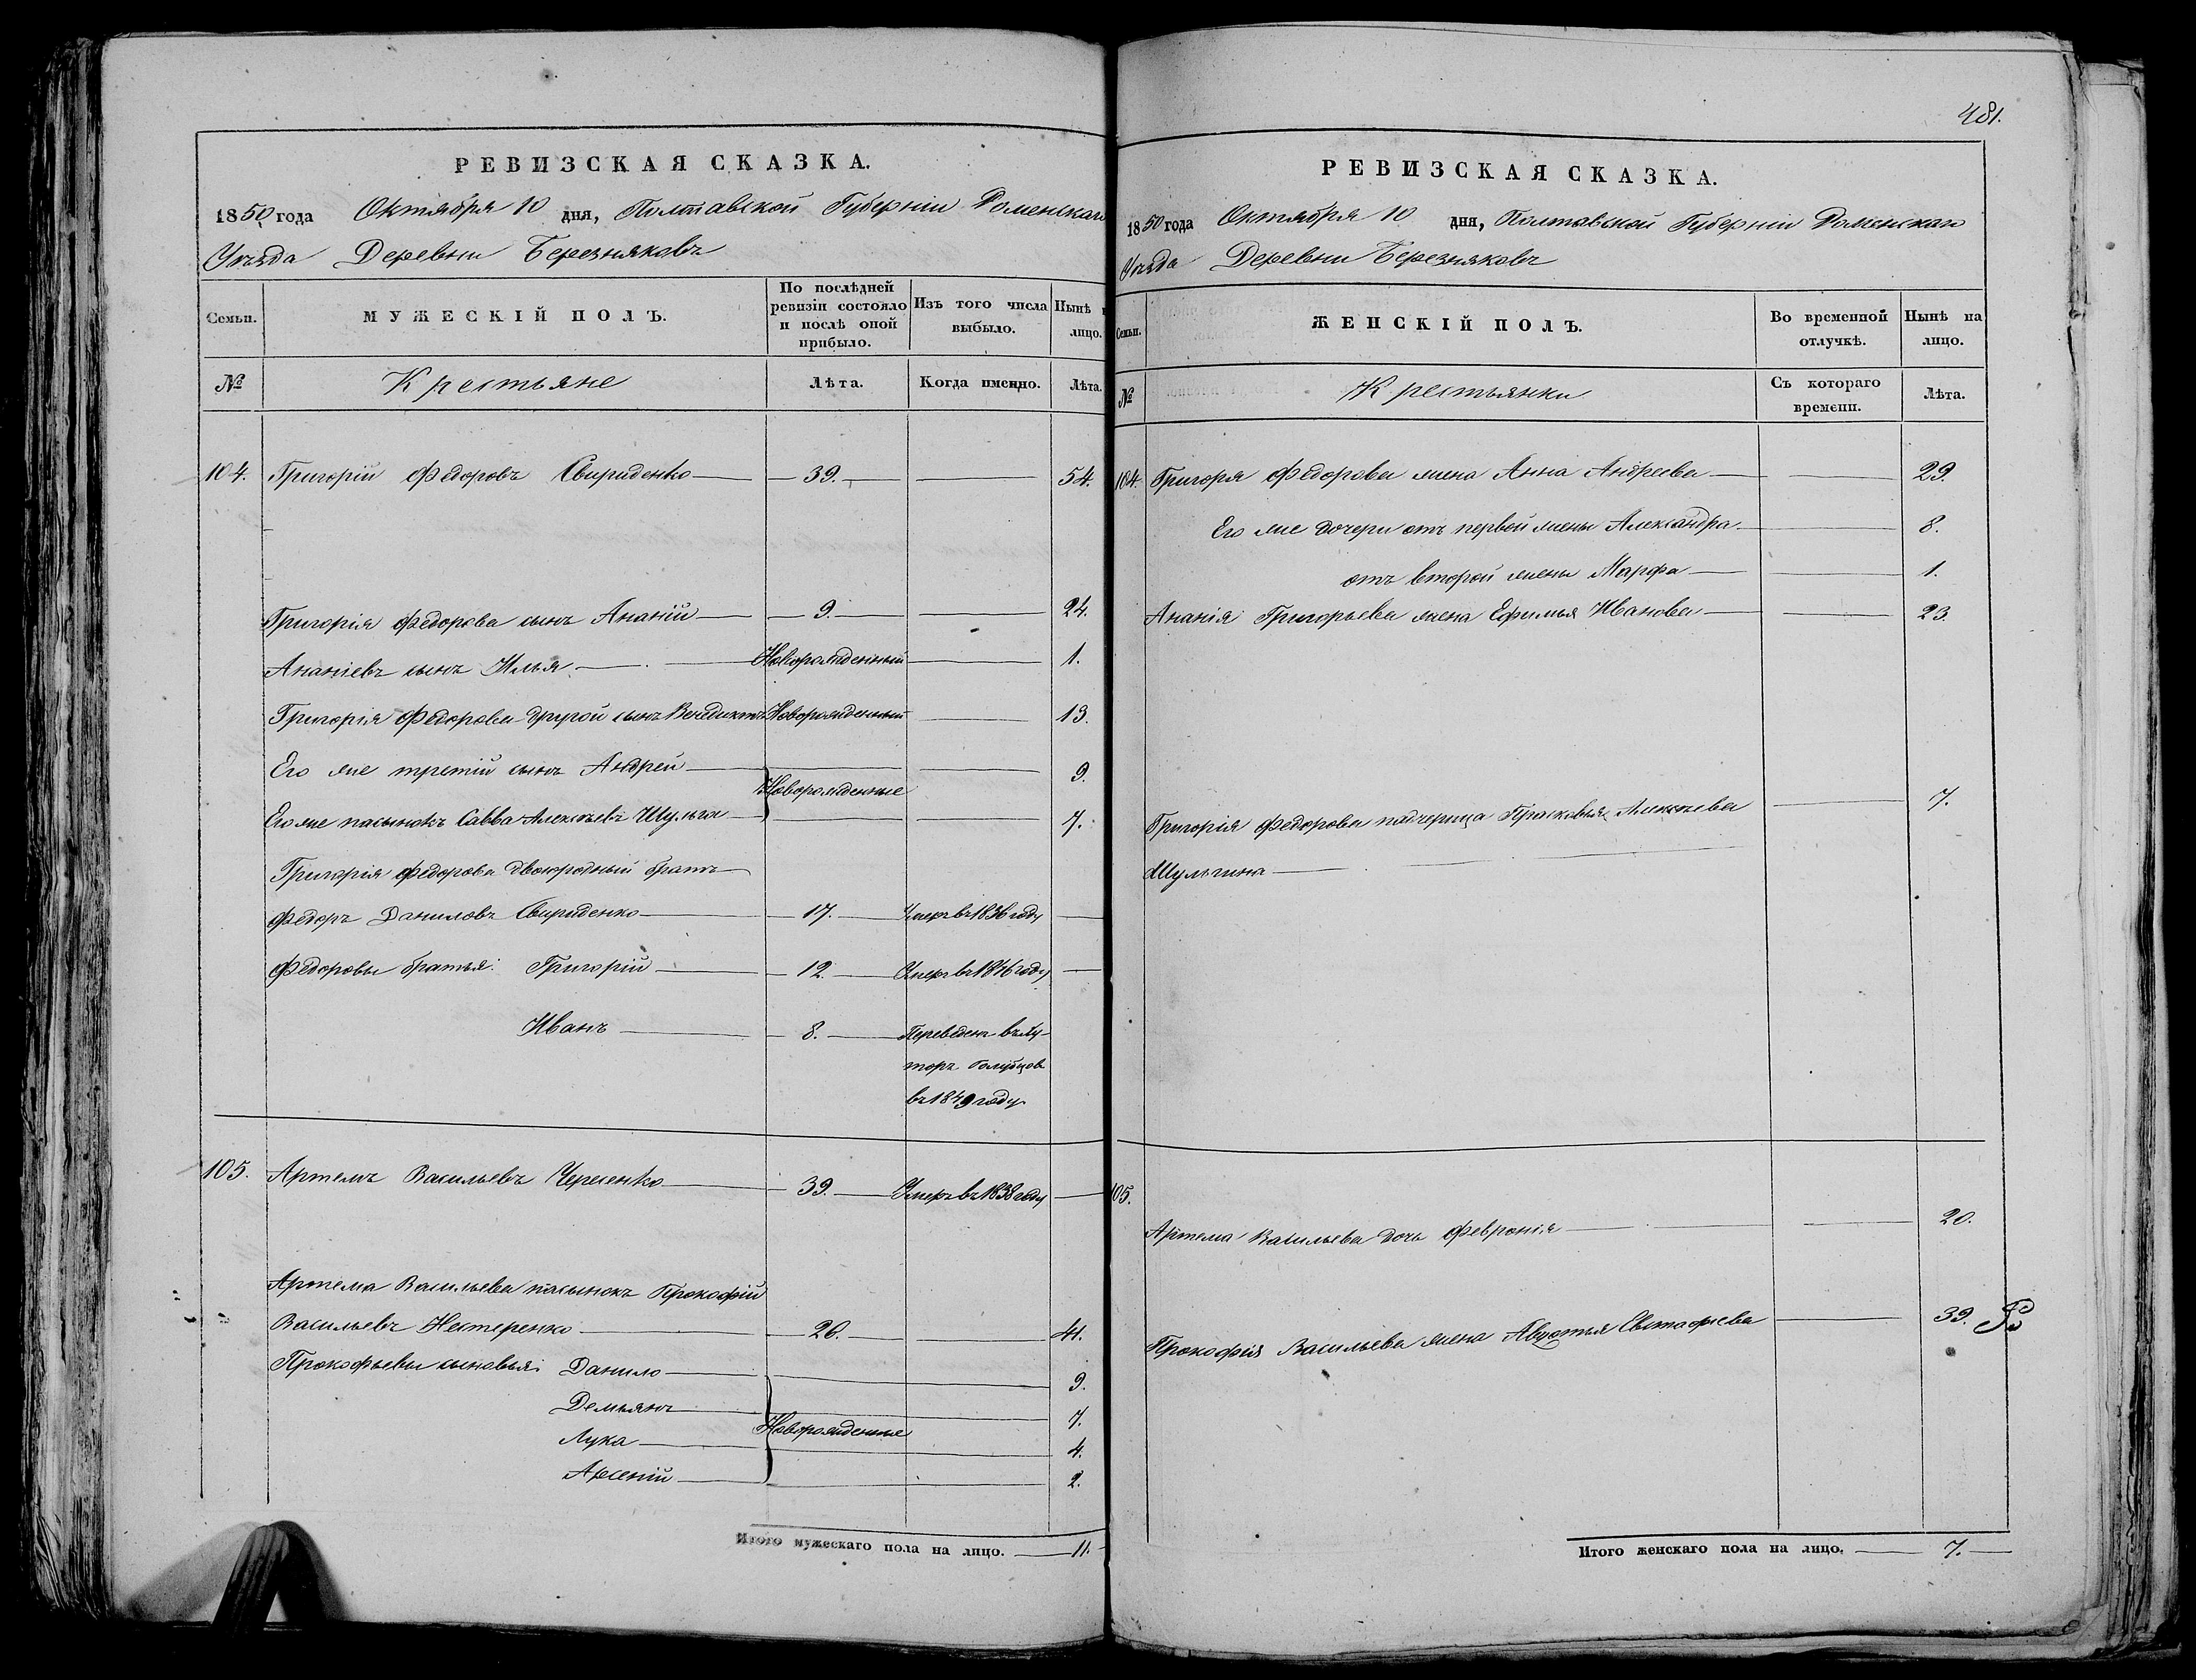 РЕВИЗСКАЯ СКАЗКА.
1850 года Октября 10 дня, Полтавской Губерніи Роменскаго
Уѣзда Деревни Березняковъ
Семьи. МУЖЕСКІЙ ПОЛЪ. По послѣдней ревизіи состояло и послѣ оной прибыло. Изъ того числа выбыло. Нынѣ на лицо.
№ Крестьяне Лѣта. Когда именно. Лѣта.
104. Григорій Федоровъ Свириденко 39. 54.
Григорія Федорова сынъ Ананій 9. 24.
Ананіевъ сынъ Илья Новорожденный 1.
Григорія Федорова другой сынъ Венедиктъ Новорожденный 13.
Его же третій сынъ Андрей 9.
Новорожденные
Его же пасынокъ Савва Алексѣевъ Шульга 7.
Григорія Федорова двоюродный братъ
Федоръ Даниловъ Свириденко 17. Умеръ въ 1836 году
Федоровы братья: Григорій 12. Умеръ въ 1846 году
Иванъ 8. Переведенъ въ Ху-
торъ Голубцов
въ 1849 году
105. Артемъ Васильевъ Чересенко 39. Умеръ въ 1838 году
Артема Васильева пасынокъ Прокофій
Васильевъ Нестеренко 26. 41.
Прокофьевы сыновья: Данило 9.
Демьянъ 7.
Новорожденные
Лука 4.
Арсеній 2.
Итого мужескаго пола на лицо. 11.
481.
РЕВИЗСКАЯ СКАЗКА.
1850 года Октября 10 дня, Полтавской Губерніи Роменскаго
Уѣзда Деревни Березняковъ
Семьи. ЖЕНСКІЙ ПОЛЪ. Во временной отлучкѣ. Нынѣ на лицо.
№ Крестьянки Съ котораго времени. Лѣта.
104. Григоря Федорова жена Анна Андреева 29.
Его же дочери отъ первой жены Александра 8.
отъ второй жены Марфа 1.
Ананія Григорьева жена Ефимья Иванова 23.
Григорія Федорова падчерица Прасковья Алексѣева 7.
Шульгина
105.
Артема Васильева дочь Февронія 20.
Прокофія Васильева жена Авдотья Евстафіева 39.
Итого женскаго пола на лицо. 7.